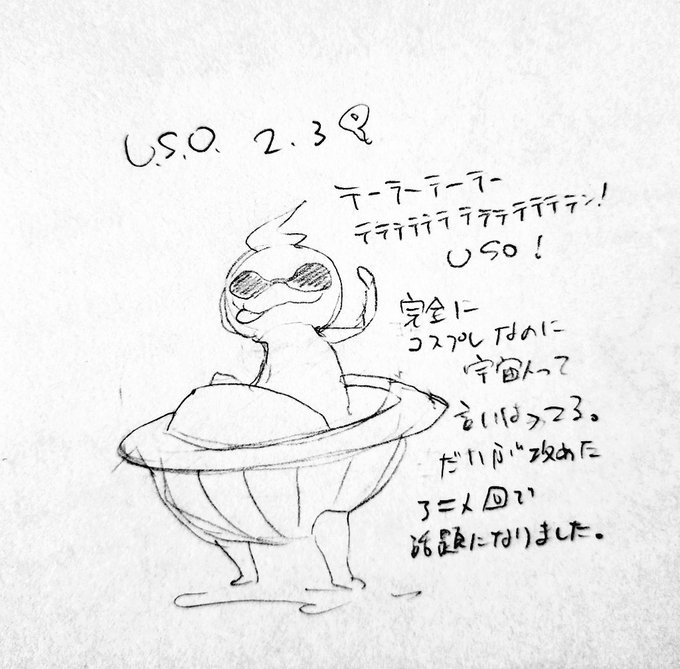 U.S.O. 2.3
テーテーテーテー
テテテテテテテテテテテテン!
USO!
完全に
コスプレなのに
宇宙人って
言いはってる。
だいぶ攻めた
アニメ回で
話題になりました。